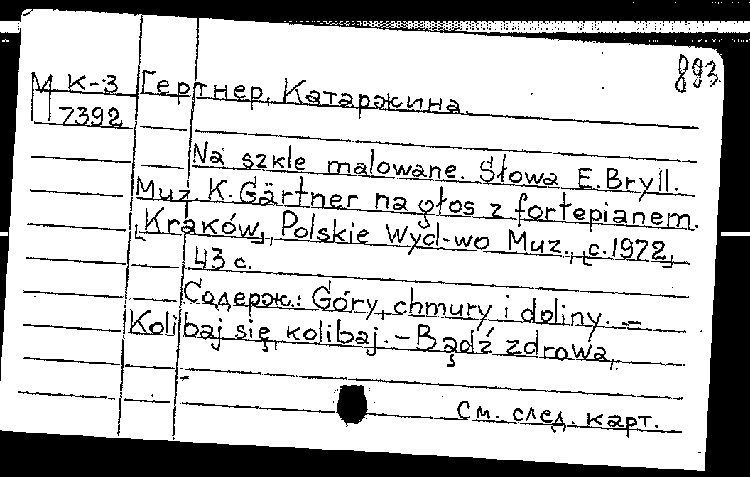 893
М К-3 Гертнер, Катаржина.
7392
Na szkle malowane. Słowa E. Bryll.
Muz. K. Gärtner na głos z fortepianem.
[Kraków], Polskie Wyd-wo Muz., [c.1972]
43 с.
Содерж.: Góry, chmury i doliny. –
Kolibaj się, kolibaj. – Bądź zdrowa,
См. след. карт.